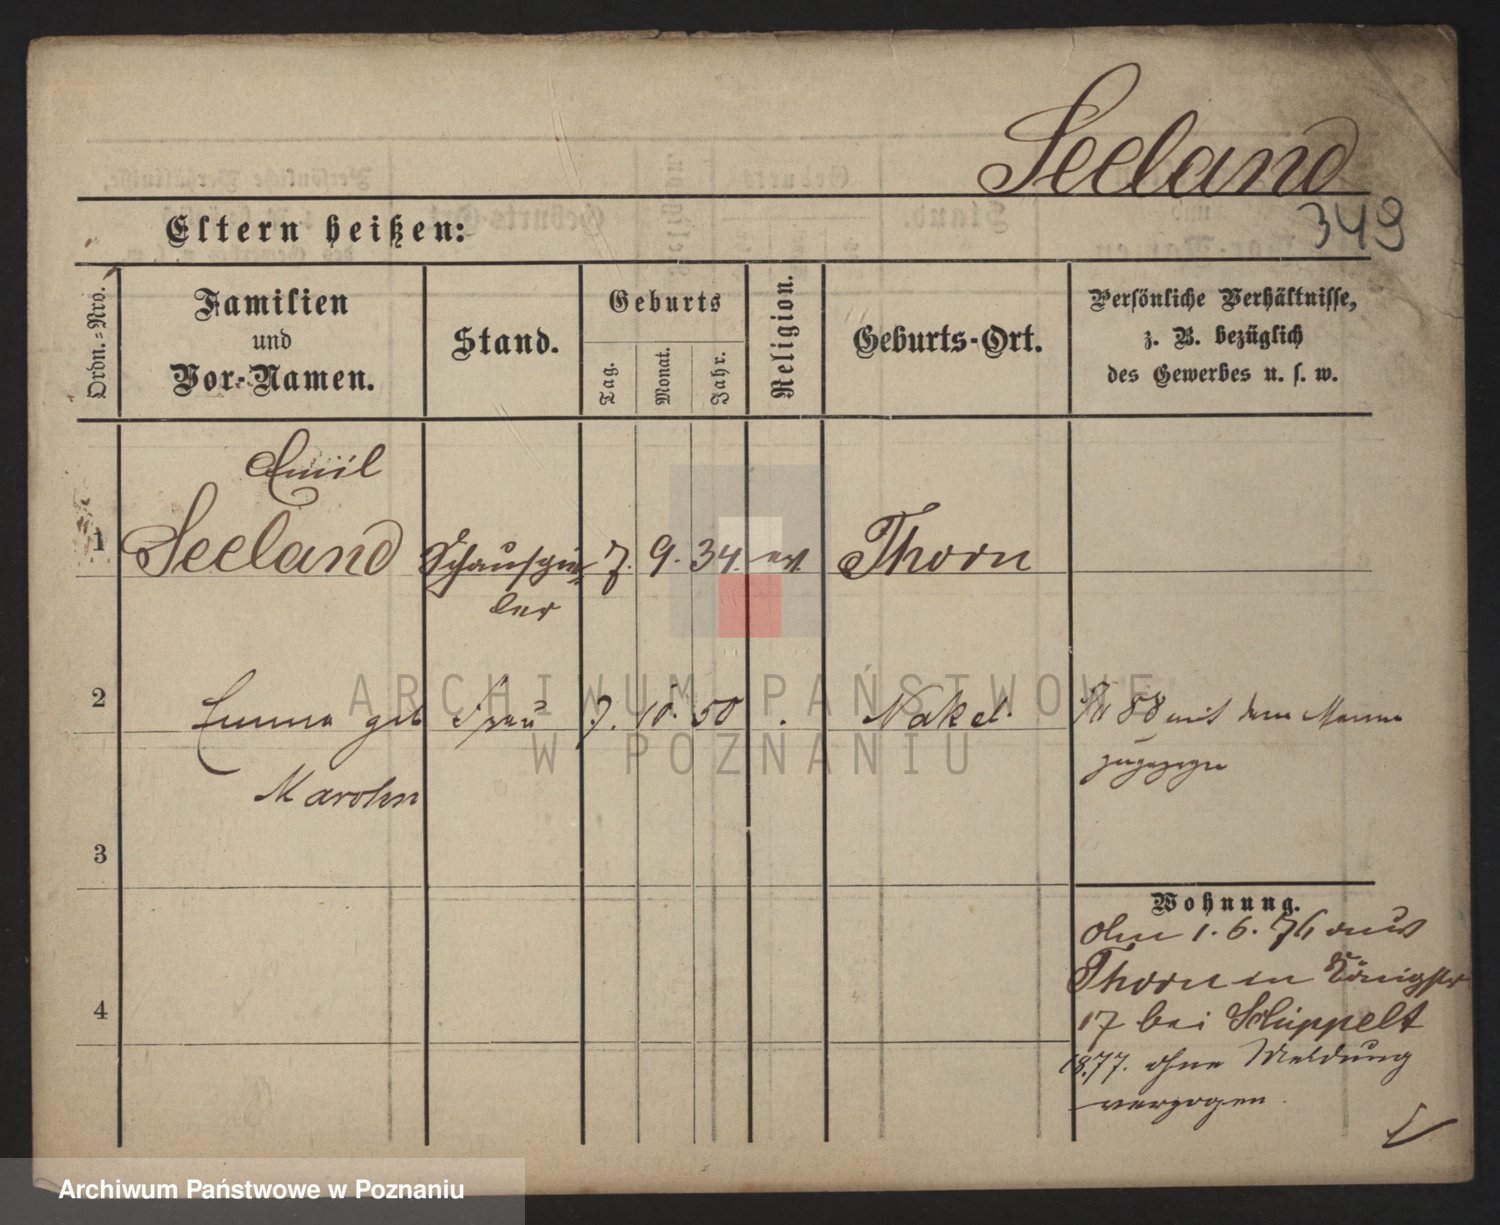 Seeland
349
Eltern heißen:
Ordn.=Nro.
Familien
und
Vor-Namen.
Stand.
Geburts
Tag.
Monat.
Jahr.
Religion.
Geburts-Ort.
Persönliche Verhältnisse,
z. B. bezüglich
des Gewerbes u. s. w.
Emil
1 Seeland Schauspie= 7. 9. 34. ev. Thorn
ler
2 Emma geb Frau 7. 10. 50 . Nakel. 88 mit dem Manne
zugezogen
Marohn
3
Wohnung.
1. 6. 76 aus
Thorn in Königstr
4
17 bei Schippelt
1877. ohne Meldung
verzogen.
ARCHIWUM PAŃSTWOWE
W POZNANIU
Archiwum Państwowe w Poznaniu